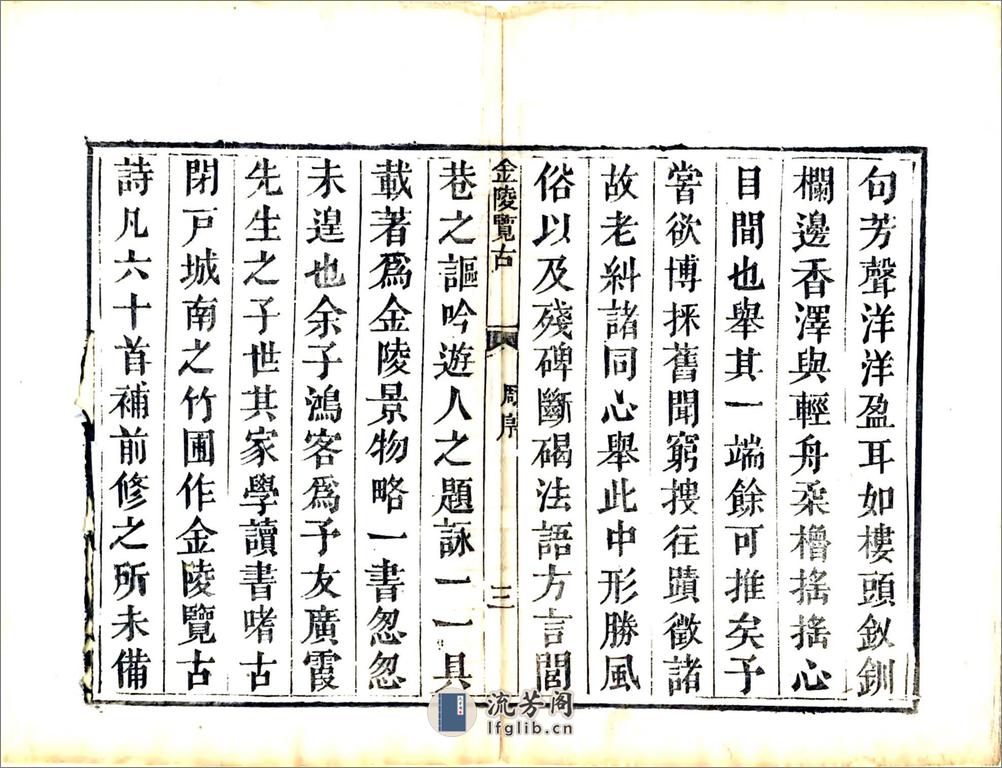 句芳聲洋洋盈耳如樓頭釵釧
欄邊香澤與輕舟柔櫓搖搖心
目間也舉其一端餘可推矣予
嘗欲博採舊聞窮搜往蹟徵諸
故老糾諸同心舉此中形勝風
俗以及殘碑斷碣法語方言閭
金陵覽古 周序 三
巷之謳吟遊人之題詠一一具
載著爲金陵景物略一書怱怱
未遑也余子鴻客爲予友廣霞
先生之子世其家學讀書嗜古
閉戸城南之竹圃作金陵覽古
詩凡六十首補前修之所未備
流芳阁
lfglib.cn